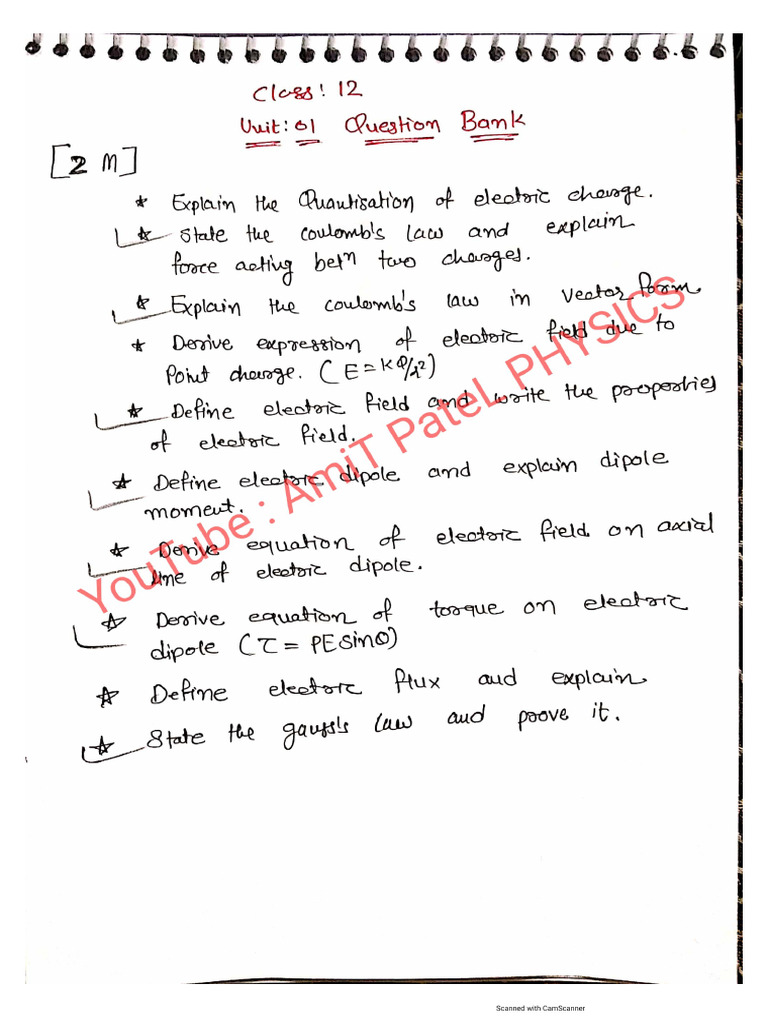 Class: 12
Unit: 01 Question Bank
[2 M]
* Explain the Quantisation of electric charge.
* State the coulomb's law and explain
force acting betⁿ two charges.
* Explain the coulomb's law in vector form
* Derive expression of electric field due to
Point charge. (E = KQ/r²)
* Define electric field and write the properties
of electric field.
* Define electric dipole and explain dipole
moment.
* Derive equation of electric field on axial
line of electric dipole.
* Derive equation of torque on electric
dipole (τ = PEsinθ)
* Define electric flux and explain
* State the gauss's law and prove it.
YouTube : AmiT PateL PHYSICS
Scanned with CamScanner